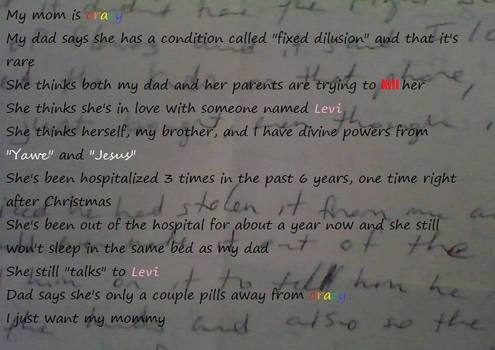 My mom is crazy
My dad says she has a condition called "fixed dilusion" and that it's
rare
She thinks both my dad and her parents are trying to kill her
on that phone,
She thinks she's in love with someone named Levi
She thinks herself, my brother, and I have divine powers from
"Yawe" and "Jesus"
She's been hospitalized 3 times in the past 6 years, one time right
after Christmas
he had stolen it from me and
She's been out of the hospital for about a year now and she still
won't sleep in the same bed as my dad
out of the
She still "talks" to Levi
him on it to tell him he
Dad says she's only a couple pills away from crazy
I just want my mommy
and also so the